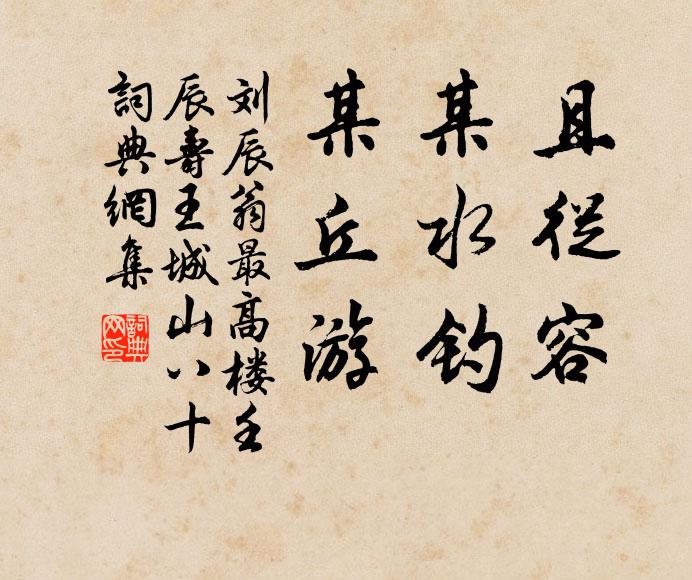 且從容
某水钓
某丘游
刘辰翁最高楼壬
辰壽王城山八十
詞典網集
詞典
网印